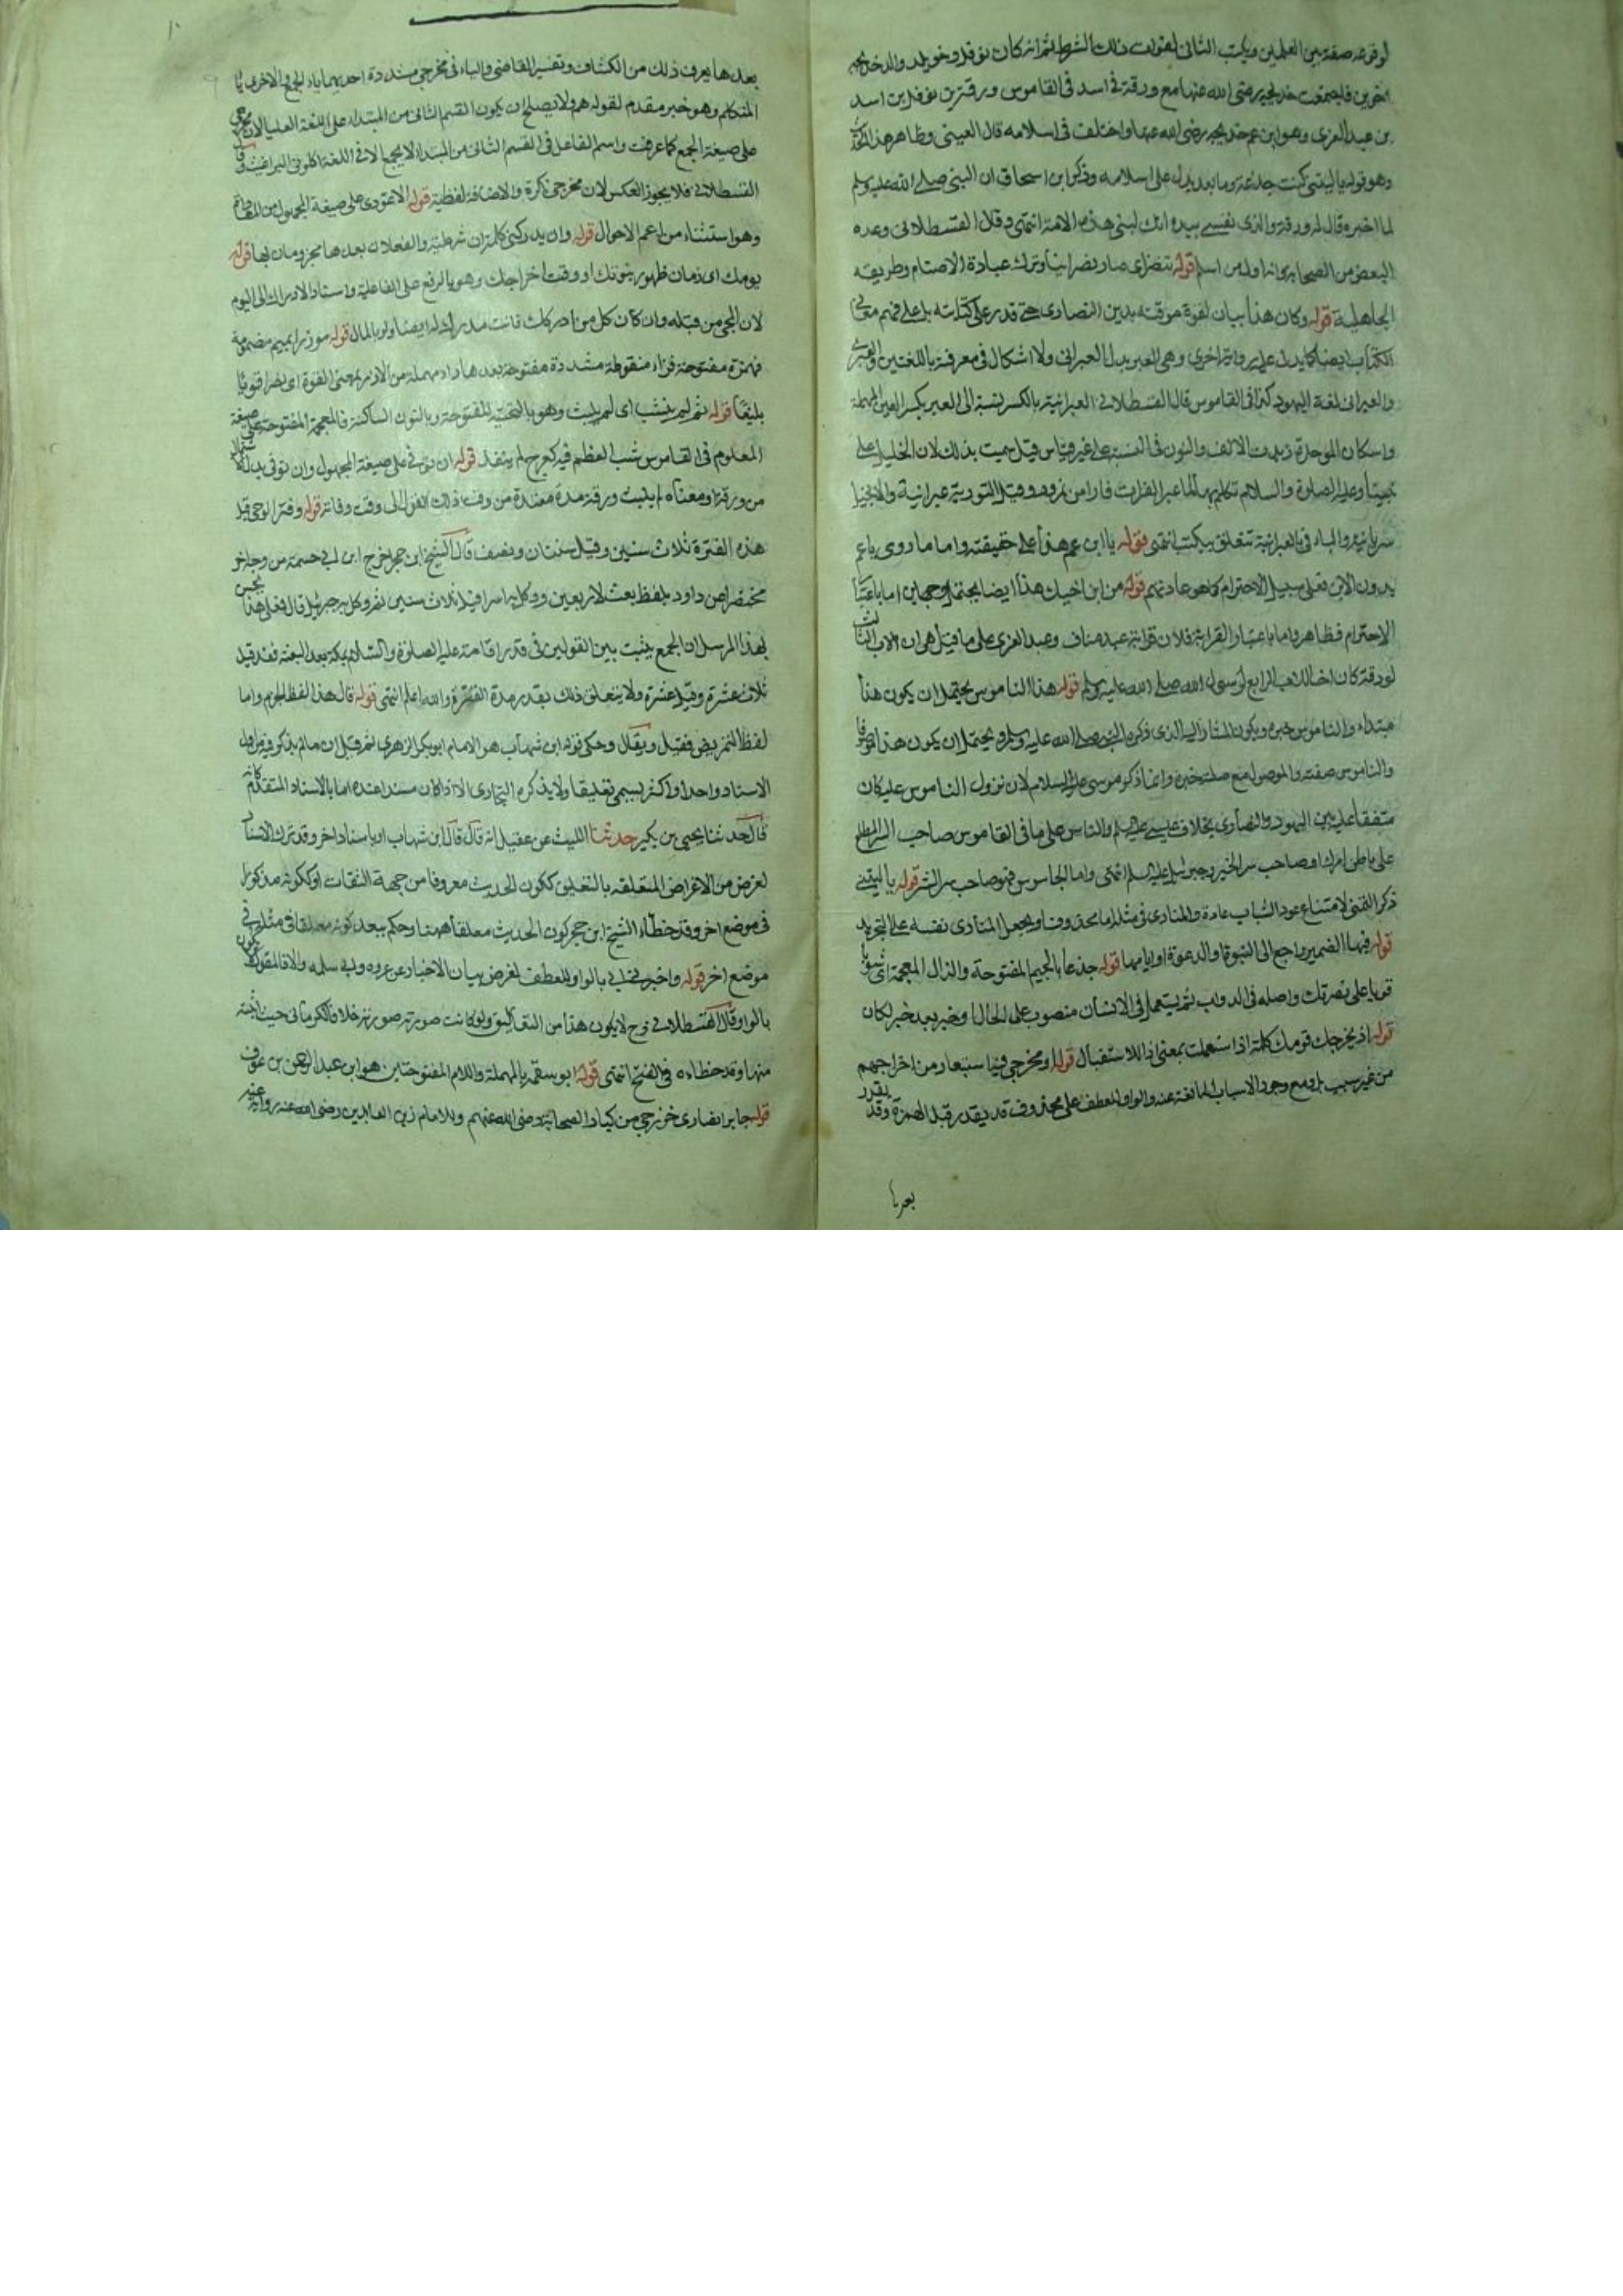 لوقوعه صفة بين العلمين ويكتب الثاني لفوات ذلك الشرط ثم انه كان نوفل وخويلد والد خديجة
اخوين فاجتمعت خديجة رضي الله عنها مع ورقة في اسد في القاموس ورقة بن نوفل بن اسد
بن عبد العزى وهو ابن عم خديجة رضي الله عنها واختلف في اسلامه قال العيني وظاهر هذا الحديث
وهو قوله يا ليتني كنت جذعة وما بعد يدل على اسلامه وذكر ابن اسحاق ان النبي صلى الله عليه وسلم
لما اخبره قال له ورقة والذي نفسي بيده انك لنبي هذه الامة انتهى وقال القسطلاني وعده
البعض من الصحابة انه اول من اسلم قوله تنصر اي صار نصرانيا وترك عبادة الاصنام وطريقه
الجاهلية قوله وكان هذا بيان لقوة موقته بدين النصارى حتى قدر على كتابته بل على فهم معاني
الكتاب ايضا كما يدل عليه رواية اخرى وهي العربي بدل العبراني ولا اشكال في معرفته باللغتين والعبري
والعبراني لغة اليهود كذا في القاموس قال القسطلاني العبرانية بالكسر نسبة الى العبر بكسر العين المهملة
واسكان الموحدة زيدت الالف والنون في النسبة على غير قياس قيل سميت بذلك لان الخليل على
نبينا وعليه الصلوة والسلام تكلم بها لما عبر الفرات فارا من نمرود وقيل التورية عبرانية والانجيل
سريانية والباء في بالعبرانية تتعلق بيكتب انتهى قوله يا ابن عم هذا على حقيقته واما ما روى يا عم
بدون الابن فعلى سبيل الاحترام كما هو عادتهم قوله من ابن اخيك هذا ايضا يحتمل وجهان اما باعتبار
الاحترام فظاهر واما باعتبار القرابة فلان قرابة عبد مناف وعبد العزى على ما قيل هي ان الاب الثالث
لورقة كان اخا للاب الرابع لرسول الله صلى الله عليه وسلم قوله هذا الناموس يحتمل ان يكون هذا
مبتداء والناموس خبره ويكون المشار اليه الذي ذكره النبي صلى الله عليه وسلم ويحتمل ان يكون هذا موصوفا
والناموس صفته والموصول مع صلته خبره وانما ذكر موسى عليه السلام لان نزول الناموس عليه كان
متفقا عليه بين اليهود والنصارى بخلاف عيسى عليه السلام والناس على ما في القاموس صاحب السر المطلع
على باطن امرك او صاحب سر الخير وجبرئيل عليه السلام انتهى واما الجاسوس فهو صاحب سر الشر قوله يا ليتني
ذكر التمني لامتناع عود الشباب عادة والمنادى في مثله اما محذوف او يجعل المنادى نفسه على التجريد
قوله فيها الضمير راجع الى النبوة او الدعوة او ايامها قوله جذعا بالجيم المفتوحة والذال المعجمة اي شويبا
قويا على نصرتك واصله في الدواب ثم يستعمل في الانسان منصوب على الحال او خبر بعد خبر لكان
قوله اذ يخرجك قومك كلمة اذا استعملت بمعنى اذا للاستقبال قوله او مخرجي فيه استبعاد من اخراجهم
من غير سبب بل ومع وجود الاسباب المانعة عنه والواو للعطف على محذوف قد يقدر قبل الهمزة وقد يقدر
بعدها
بعدها يعرف ذلك من الكشاف وتفسير القاضي والياء في مخرجي مشددة احديهما ياء الجمع والاخرى يا
المتكلم وهو خبر مقدم لقوله هم ولا يصلح ان يكون القسم الثاني من المبتداء على اللغة العليا لان مخرجي
على صيغة الجمع كما عرفت واسم الفاعل في القسم الثاني من المبتداء لا يجمع الا في اللغة اكلوني البراغيث وقال
القسطلاني فلا يجوز العكس لان مخرجي نكرة والاضافة لفظية قوله الا عودي على صيغة المجهول من المعاداة
وهو استثناء من اعم الاحوال قوله وان يدركني كلمة ان شرطية والفعلان بعدها مجزومان بها قوله
يومك اي زمان ظهور نبوتك او وقت اخراجك وهو بالرفع على الفاعلية واسناد الادراك الى اليوم
لان المجئ من قبله وان كان كل من ادركك فانت مدرك له ايضا ولو بالمال قوله موزرا بميم مضمومة
فهمزة مفتوحة فزاء منقوطة مشددة مفتوحة بعدها راء مهملة من الازر بمعنى القوة اي نصرا قويا
بليغا قوله ثم لم ينشب اي لم يلبث وهو بالتحتية المفتوحة وبالنون الساكنة فالمعجمة المفتوحة على صيغة
المعلوم في القاموس نشب العظم فيه كفرح لم ينفذ قوله ان توفي على صيغة المجهول وان توفي بدل اشتمال
من ورقة ومعناه لم يلبث ورقة مدة معتدة من وقت ذلك القول الى وقت وفاته قوله وفتر الوحي قيل
هذه الفترة ثلاث سنين وقيل سنتان ونصف قال الشيخ ابن حجر اخرج ابن ابي خيثمة من وجه اخر
مختصرا عن داود بلفظ بعث لاربعين ووكل به اسرافيل ثلاث سنين ثم وكل به جبرئيل قال فعلى هذا يحسن
بهذا المرسل ان الجمع يثبت بين القولين في قدر اقامته عليه الصلوة والسلام بمكة بعد البعثة فقد قيل
ثلاث عشرة وقيل عشرة ولا يتعلق ذلك بقدر مدة الفترة والله اعلم انتهى قوله قال هذا لفظ الجزم واما
لفظ التمريض فقيل ويقال وحكي قوله ابن شهاب هو الامام ابو بكر الزهري ثم قيل ان ما لم يذكر فيه اول
الاسناد واحدا واكثر يسمى تعليقا ولا يذكره البخاري الا اذا كان مسندا عنده اما بالاسناد المتقدم كانه
قال حدثنا يحيى بن بكير حدثنا الليث عن عقيل انه قال قال ابن شهاب او باسناد اخر وقد ترك الاسناد
لغرض من الاغراض المتعلقة بالتعليق ككون الحديث معروفا من جهة الثقات او ككونه مذكورا
في موضع اخر وقد خطأه الشيخ ابن حجر كون الحديث معلقا ههنا وحكم ببعد كونه معلقا في مثله في
موضع اخر قوله واخبرني بالواو للعطف لغرض بيان الاخبار عن عروة وابي سلمة والا فالمقول لا يكون
بالواو وقال القسطلاني نرح لا يكون هذا من التعاليق ولو كانت صورته صورته خلافا للكرماني حيث اثبته
منها وقد خطاءه في الفتح انتهى قوله ابو سلمة بالمهملة واللام المفتوحتين هو ابن عبد الرحمن بن عوف
قوله جابر انصاري خزرجي من كبار الصحابة رضي الله عنهم وللامام زين العابدين رضي الله عنه رواية عنه